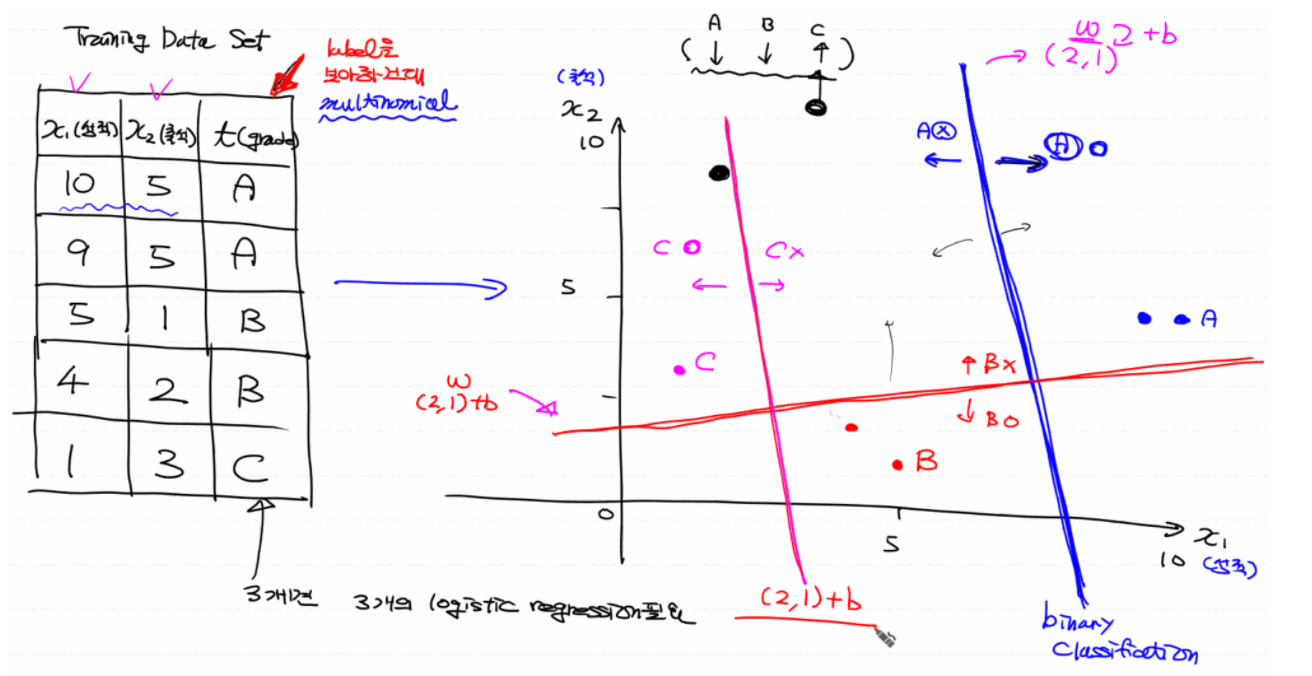 Training Data Set
label을
보아하건대
multinomial
x₁(성적) x₂(출석) t(grade)
10 5 A
9 5 A
5 1 B
4 2 B
1 3 C
3개면 3개의 logistic regression필요
A B C
( ↓ ↓ ↑ )
(출석)
x₂
10
5
0
5
10
x₁
(성적)
w x + b
(2,1)
Aⓧ
A
A
C
C x
C
w
(2,1)+b
↑ B x
↓ B O
B
(2,1)+b
binary
classification